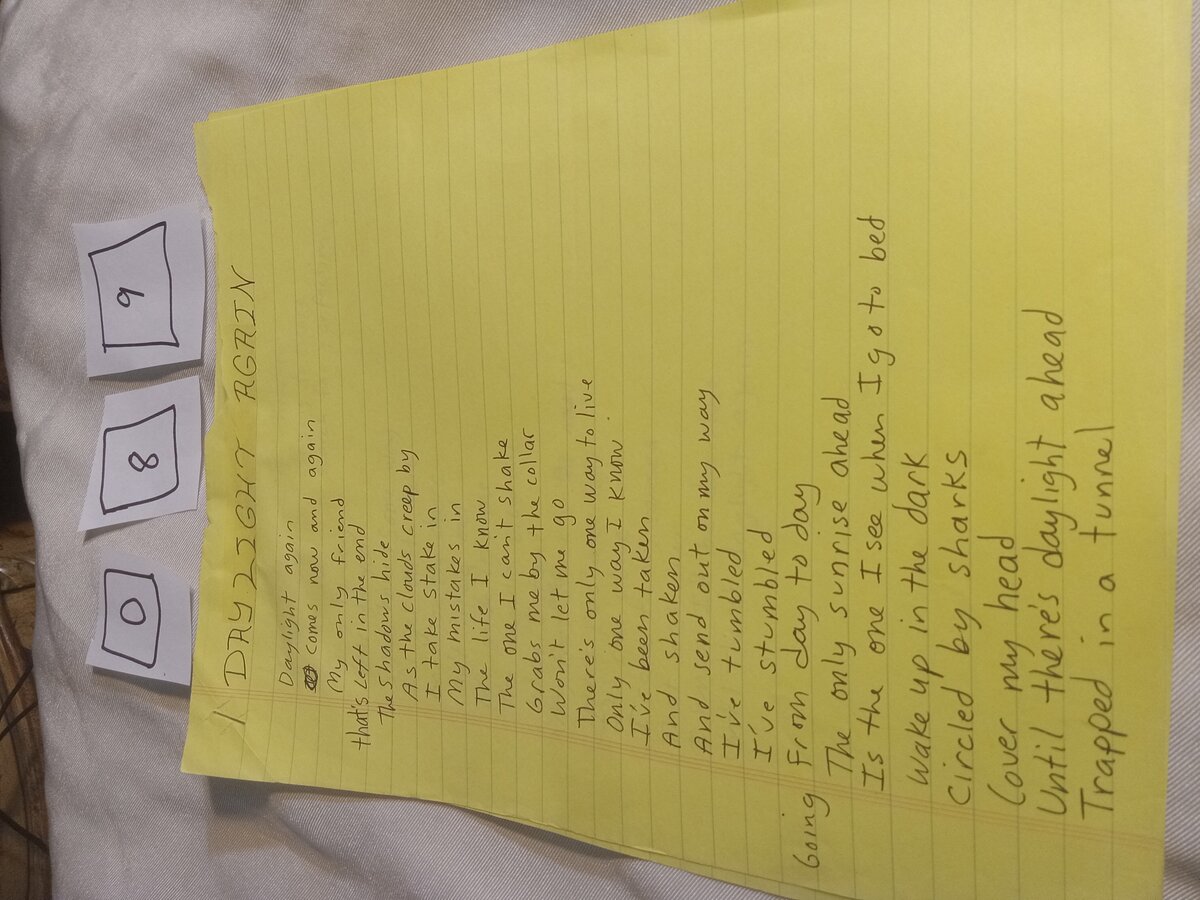 0 8 9
DAYLIGHT AGAIN
Daylight again
comes now and again
My only friend
that's Left in the end
The shadows hide
As the clouds creep by
I take stake in
My mistakes in
The life I know
The one I can't shake
Grabs me by the collar
Won't let me go
There's only one way to live
Only one way I know.
I've been taken
And shaken
And send out on my way
I've tumbled
I've stumbled
Going From day to day
The only sunrise ahead
Is the one I see when I go to bed
Wake up in the dark
Circled by sharks
Cover my head
Until there's daylight ahead
Trapped in a tunnel